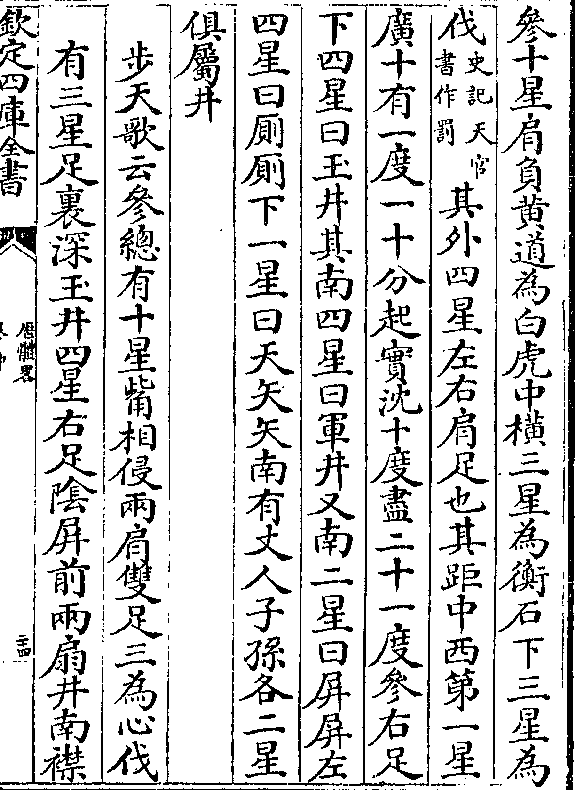 參十星肩負黄道為白虎中横三星為衡石下三星為
伐史記天官書作罰其外四星左右肩足也其距中西第一星
廣十有一度一十分起實沈十度盡二十一度參右足
下四星曰玉井其南四星曰軍井又南二星曰屏屏左
四星曰厠厠下一星曰天矢矢南有丈人子孫各二星
俱屬井
步天歌云參總有十星觜相侵兩肩雙足三為心伐
有三星足裏深玉井四星右足陰屏前兩扇井南襟
欽定四庫全書
厯體畧
二十四